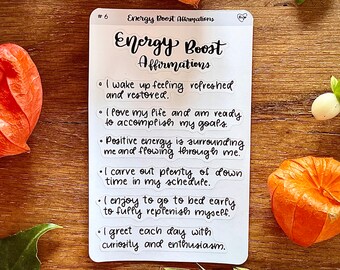 # 6 Energy Boost Affirmations
Energy Boost
Affirmations
• I wake up feeling refreshed
and restored.
• I love my life and am ready
to accomplish my goals.
• Positive energy is surrounding
me and flowing through me.
• I carve out plenty of down
time in my schedule.
• I enjoy to go to bed early
to fully replenish myself.
• I greet each day with
curiosity and enthusiasm.